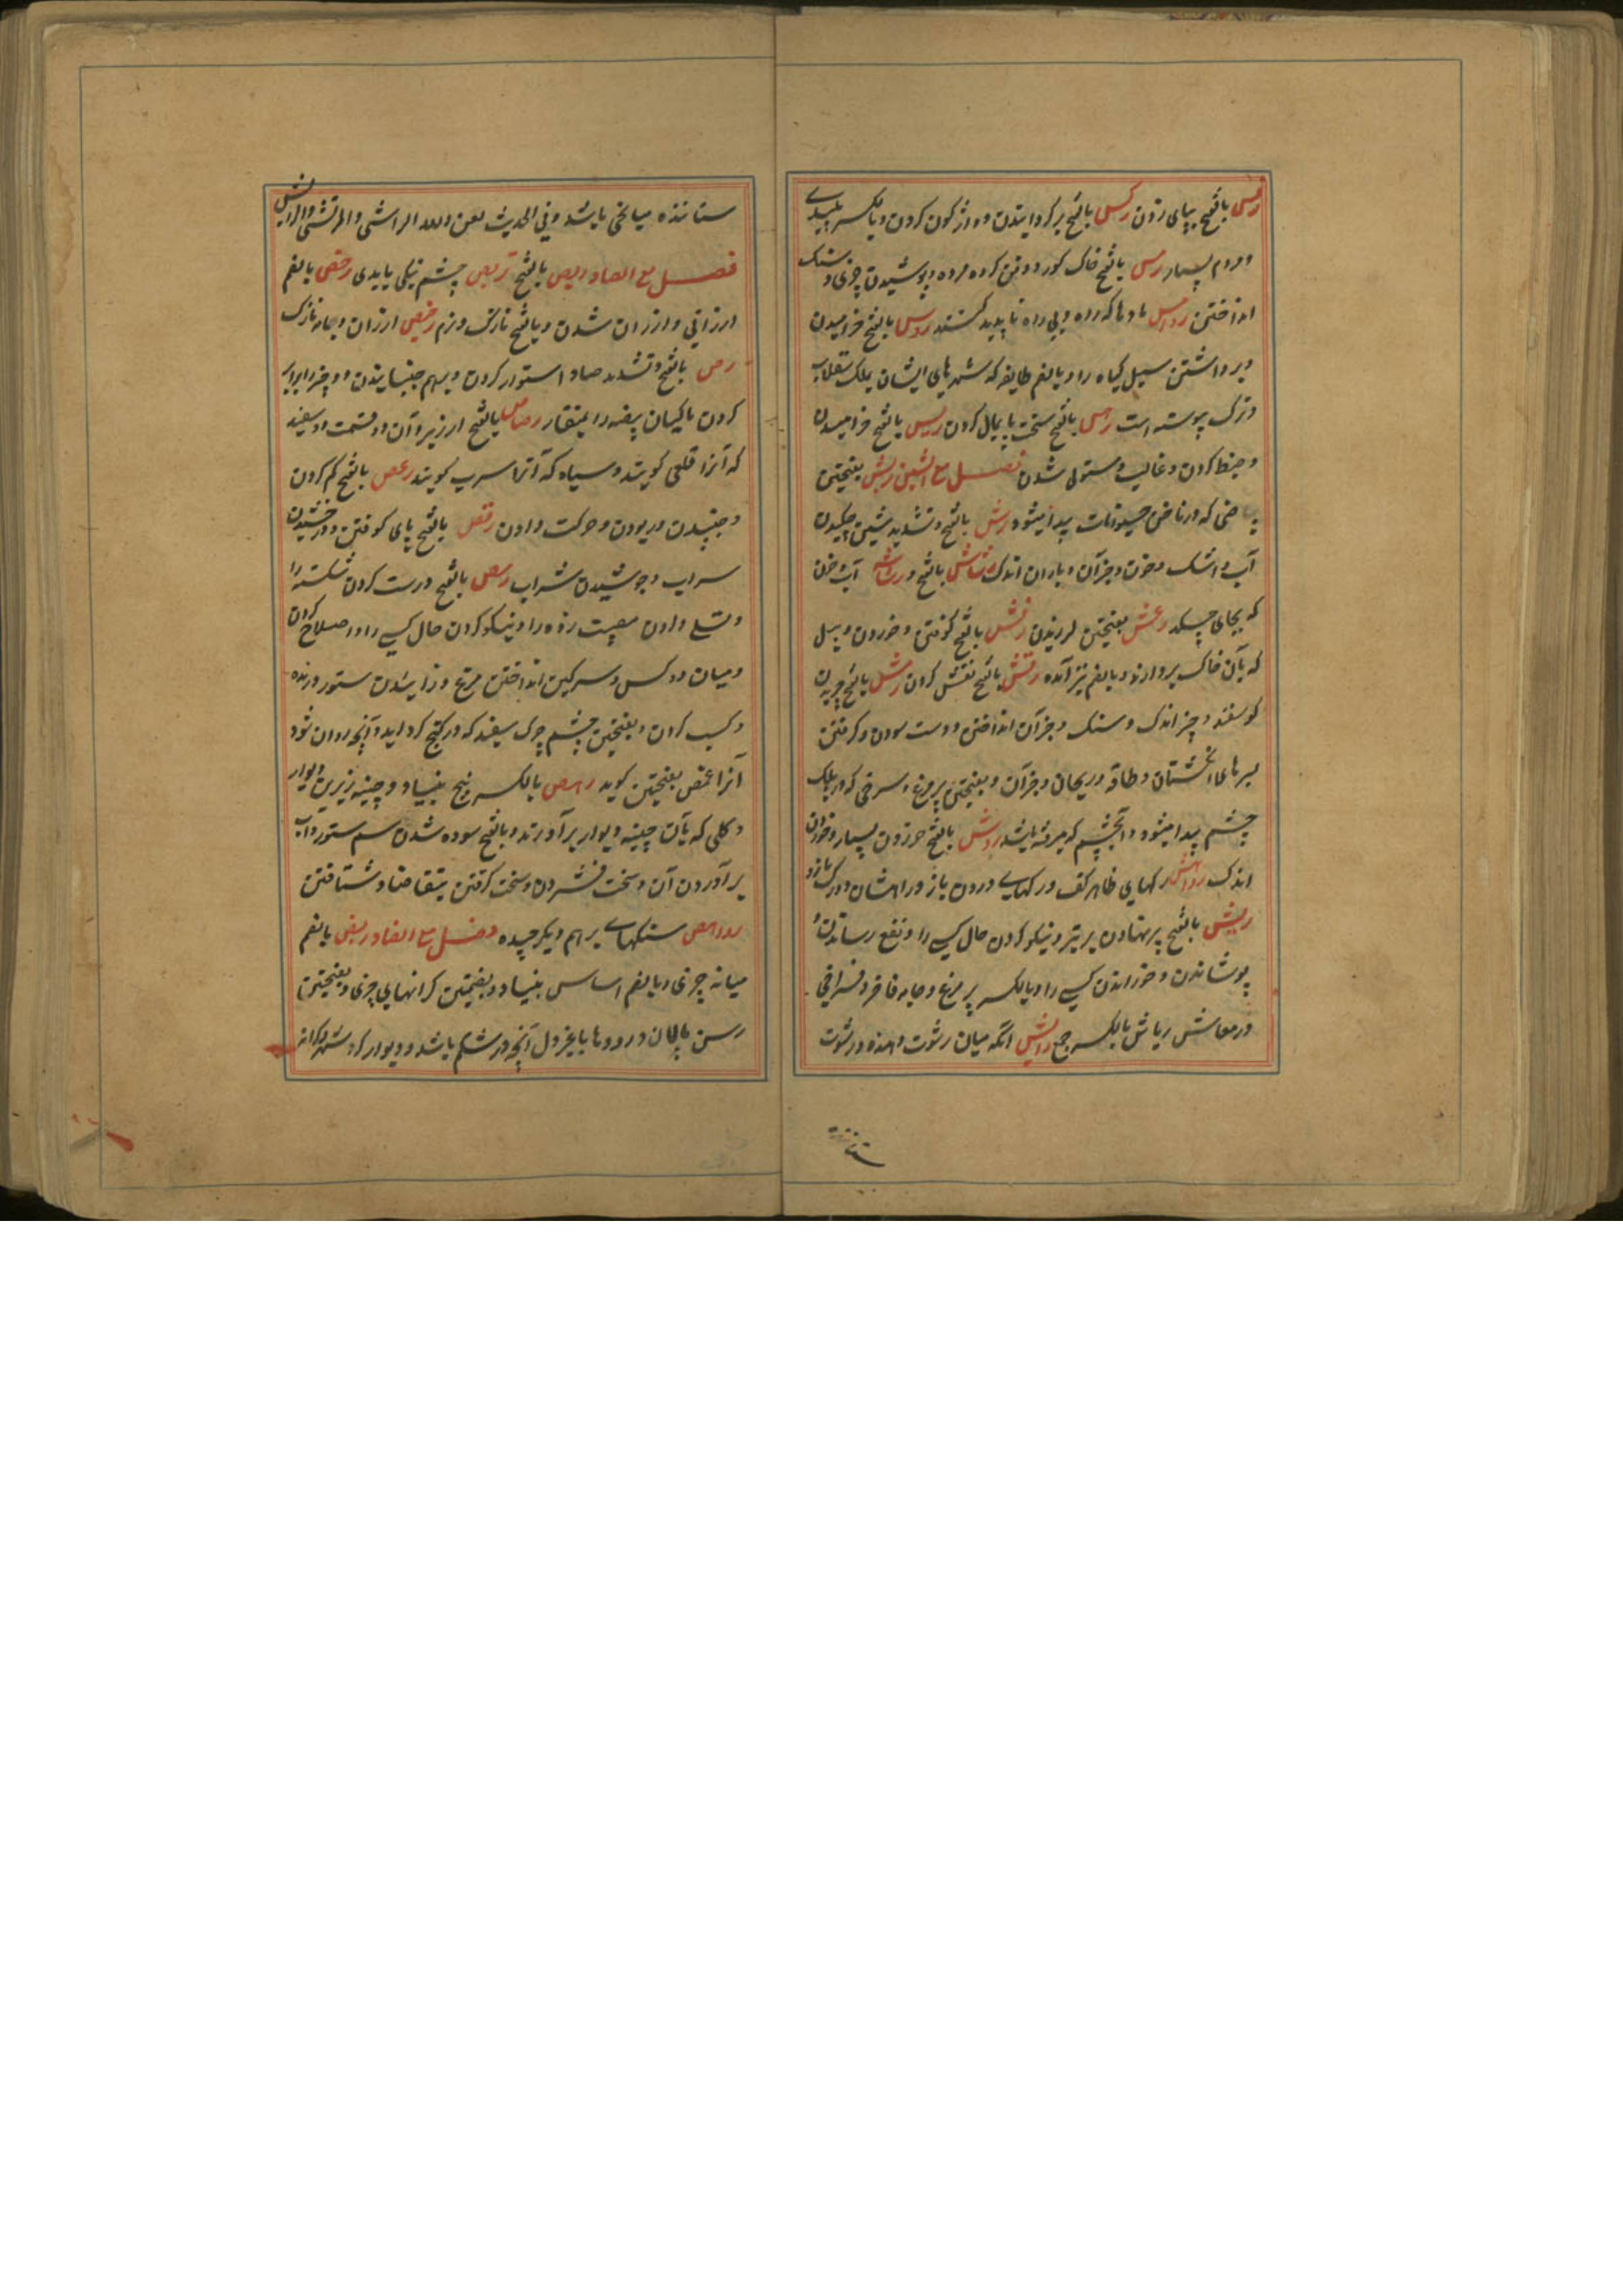 رفس بالفتح بپای زدن رکس بالفتح برگردانیدن و واژگون کردن و بالکسر پلیدی
و مردم بسیار رمس بالفتح خاک گور و دفن کردن مرده و پوشیدن چیزی و سنگ
انداختن روامس بادها که راه و پی راه ناپدید کنند روس بالفتح خرامیدن
و برداشتن سیل گیاه را و بالضم طایفه که شهرهای ایشان بملک سقلاب
و ترک پیوسته است رهس بالفتح سخت پایمال کردن ریس بالفتح خرامیدن
و ضبط کردن و غالب و مستولی شدن فصل مع الشین ربش بفتحتین
بیاضی که در ناخن حیوانات پیدا میشود رش بالفتح و تشدید شین چکیدن
آب و اشک و خون و جز آن و باران اندک رشاش بالفتح و رشاشه آب و خون
که بجای چکد رعش بفتحتین لرزیدن رفش بالفتح کوفتن و خوردن و بیل
که بآن خاک بردارند و بالضم نیز آمده رقش بالفتح نقش کردن رمش بالفتح چریدن
گوسفند چیز اندک و سنگ و جز آن انداختن و دست سودن و گرفتن
بسرهای انگشتان و طاقه و ریحان و جز آن و بفتحتین پر مرغ و سرخی که در پلک
چشم پیدا میشود و آبچشم که میرفته باشد روش بالفتح خوردن بسیار و خوردن
اندک رواهش رگهای ظاهر کف و رگهای درون بازو
ریش بالفتح پر نهادن بر تیر و نیکو کردن حال کسی را و نفع رسانیدن و
پوشانیدن و خورانیدن کسی را و بالکسر پر مرغ و جامه فاخر و فراخی
در معاش ریاش بالکسر جمع رایش آنکه میان رشوت دهنده و رشوت
ستانـ
ستاننده میانجی باشد و فی الحدیث لعن الله الراشی و المرتشی و الرایش
فصل مع الصاد ربص بالفتح تربص چشم نیکی یا بدی رخص بالضم
ارزانی و ارزان شدن و بالفتح نازک و نرم رخیص ارزان و جامه نازک
رص بالفتح و تشدید صاد استوار کردن و بهم چسپانیدن دو چیز و برابر
کردن ماکیان بیضه را بمنقار رصاص بالفتح ارزیز و آن دو قسمت است سفید
که آنرا قلعی گویند و سیاه که آنرا سرب گویند رعص بالفتح کم کردن
و جنبیدن و ربودن و حرکت دادن رقص بالفتح پای کوفتن و درخشیدن
سراب و جوشیدن شراب رمص بالفتح درست کردن شکسته را
و تسلی دادن مصیبت زده را و نیکو کردن حال کسی را و اصلاح کردن
و میان دو کس و سرگین انداختن مرغ و زائیدن ستور درنده
و کسب کردن و بفتحتین چشم چرک سفید که در کنج گرد آید و آنچه روان شود
آنرا غمص بفتحتین گوید رهص بالکسر بیخ بنیاد و چینه زیرین دیوار
و گلی که بآن چینه دیوار برآورند و بالفتح سوده شدن سم ستور و آب
برآوردن آن و سخت فشردن و سخت گرفتن بتقاضا و شتافتن
رواهص سنگهای برهم دیگر چیده فصل مع الضاد ربض بالضم
میانه چیزی و بالضم اساس بنیاد و بضمتین کرانهای چیزی و بفتحتین
رسن پالان و رودها یا بجز دل آنچه در شکم باشد و دیوار گرد شهر و کرانه